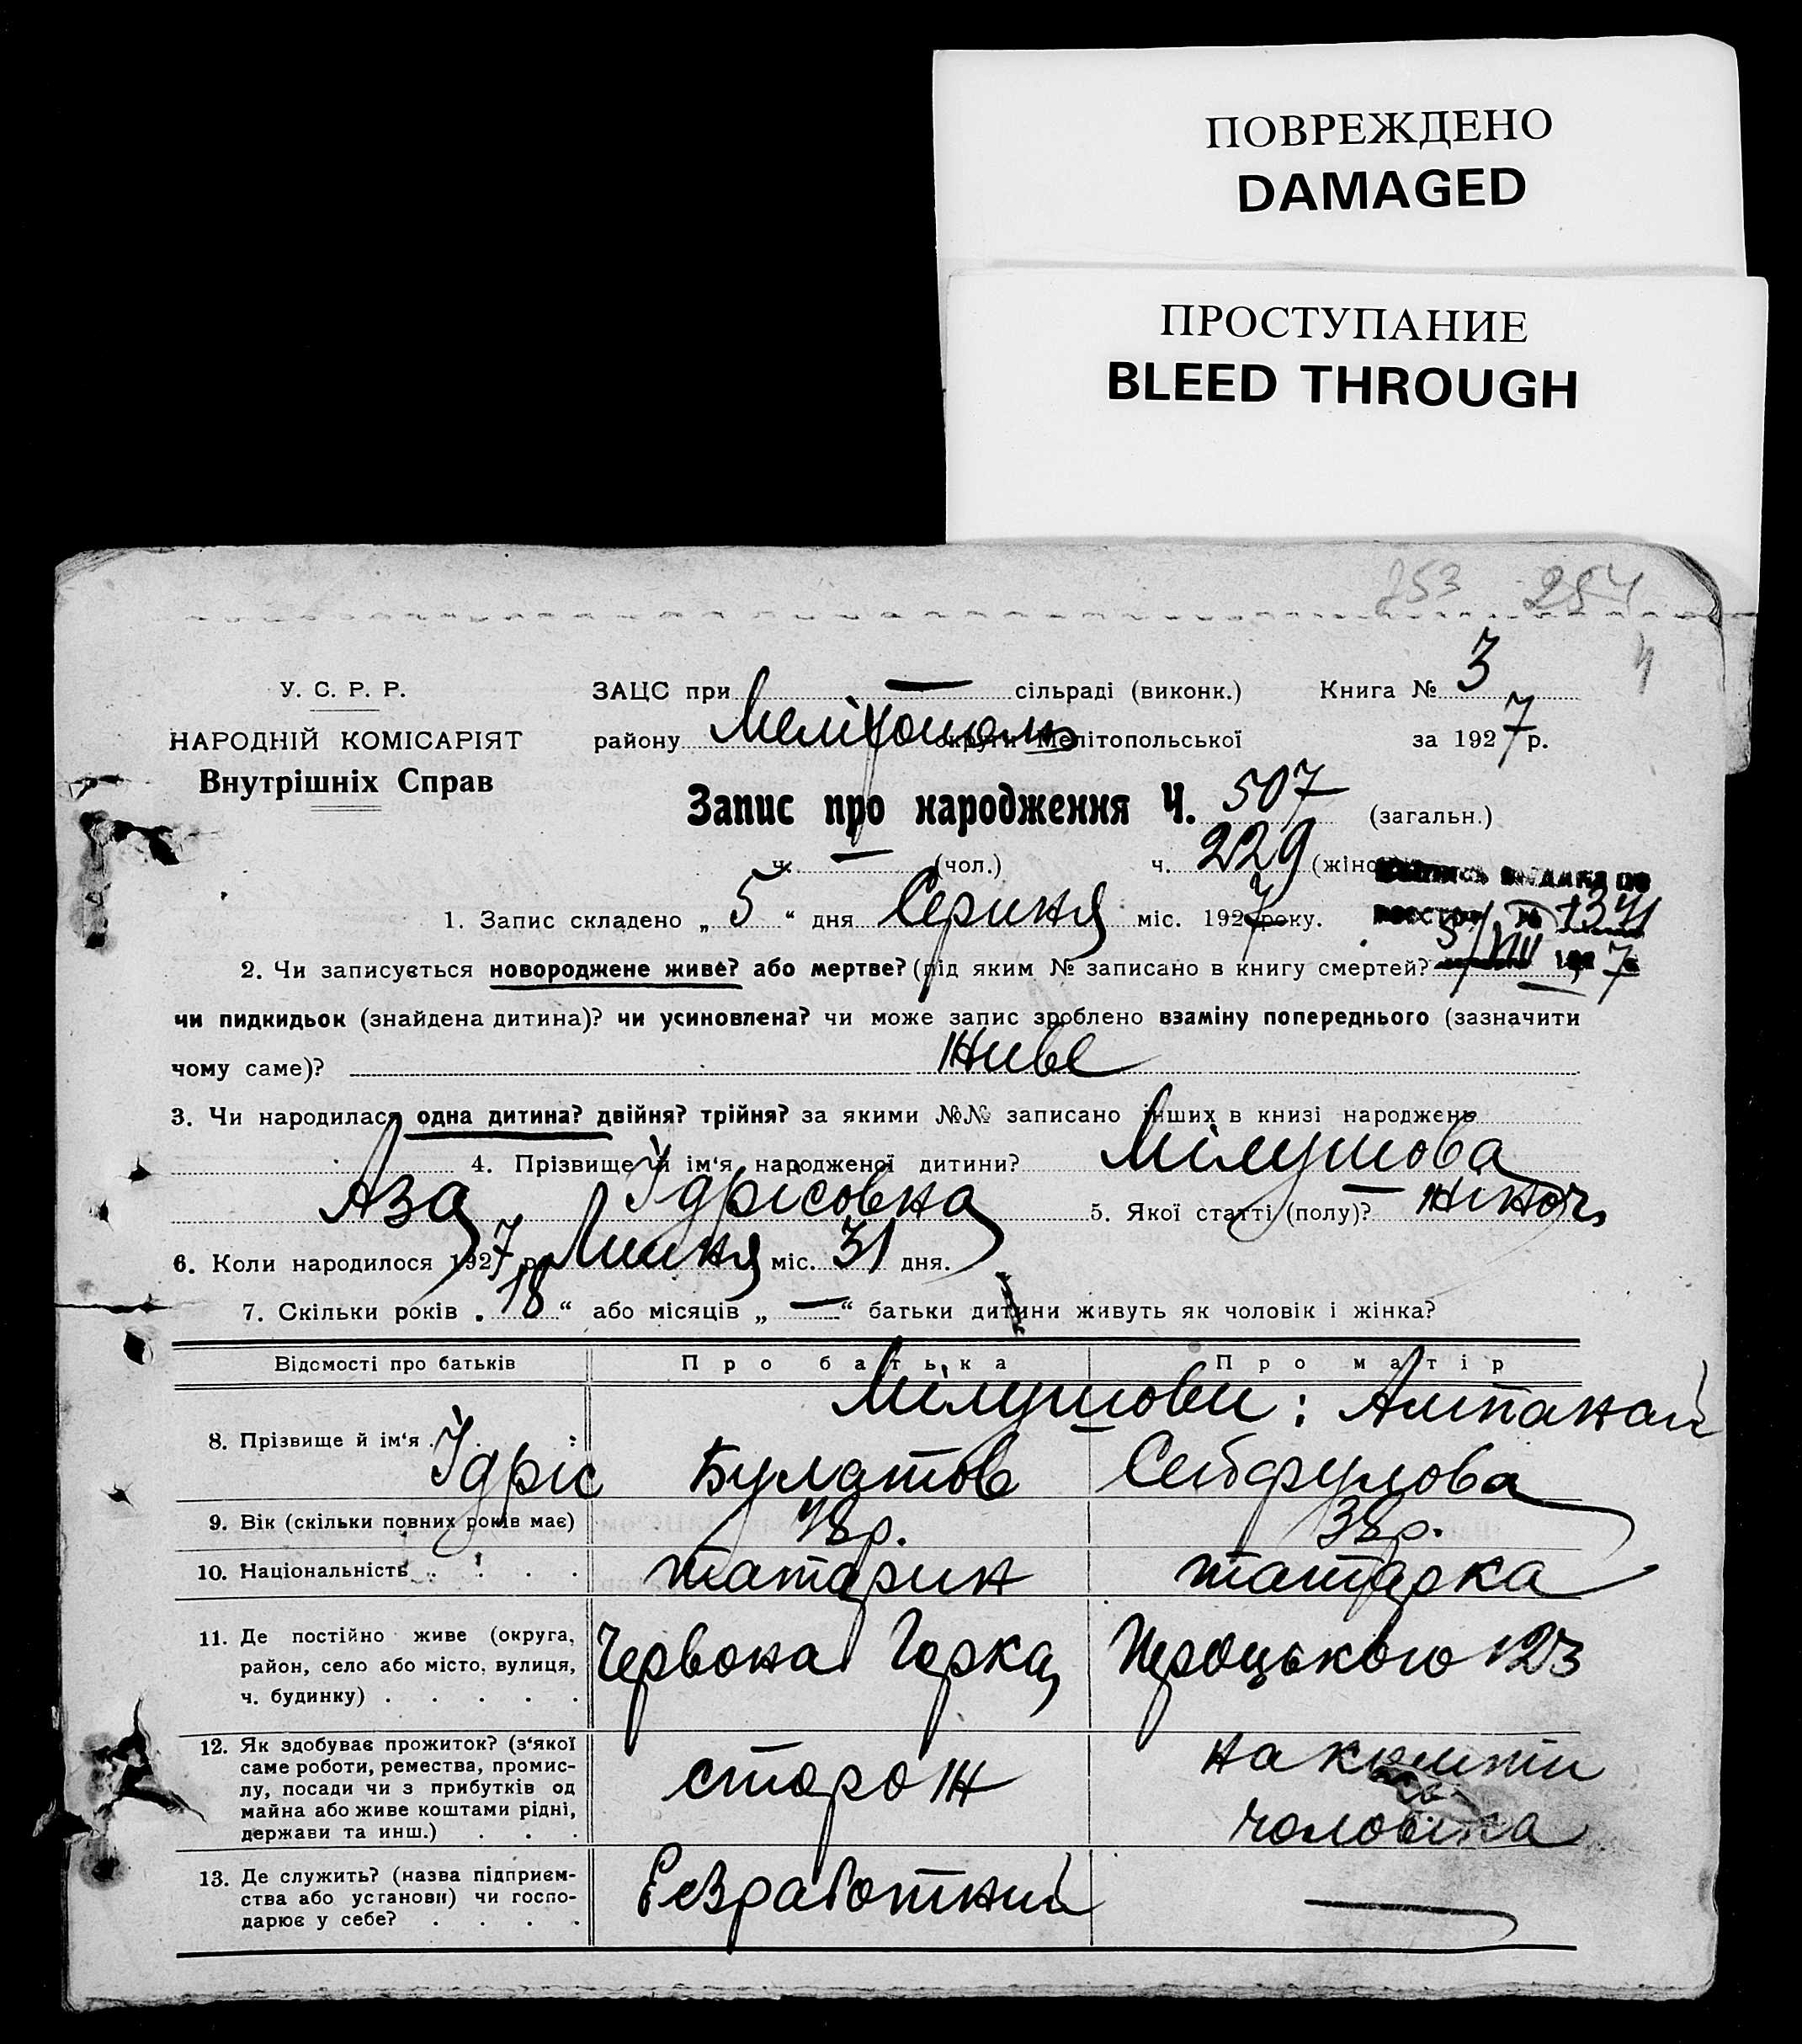 ПОВРЕЖДЕНО
DAMAGED
ПРОСТУПАНИЕ
BLEED THROUGH
253 254
У. С. Р. Р.
НАРОДНІЙ КОМІСАРІЯТ
Внутрішніх Справ
ЗАЦС при — сільраді (виконк.) Книга № 3
району Мелітополь округи Мелітопольської за 1927 р.
Запис про народження Ч. 507 (загальн.)
ч. — (чол.) ч. 229 (жіноч.)
1. Запис складено „ 5 “ дня Серпня міс. 1927 року.
2. Чи записується новороджене живе? або мертве? (під яким № записано в книгу смертей?
5/VIII 1927
чи пидкидьок (знайдена дитина)? чи усиновлена? чи може запис зроблено взаміну попереднього (зазначити
чому саме)? Живе
3. Чи народилася одна дитина? двійня? трійня? за якими №№ записано інших в книзі народжень
4. Прізвище й ім‘я народженої дитини? Мілушова
Аза Ідрісовна 5. Якої статті (полу)? жіноч
6. Коли народилося 1927 р. Липня міс. 31 дня.
7. Скільки років „ 18 “ або місяців „ — “ батьки дитини живуть як чоловік і жінка?
Відомості про батьків Про батька Про матір
8. Прізвище й ім‘я . . :
Мілушови: Алтанай
Ідріс Булатов Сейфулова
9. Вік (скільки повних років має) 48 р. 38 р.
10. Національність . . . . татарин татарка
11. Де постійно живе (округа,
район, село або місто, вулиця,
ч. будинку) . . . . .
Червона Горка, 123
12. Як здобуває прожиток? (з‘якої
саме роботи, ремества, промис-
лу, посади чи з прибутків од
майна або живе коштами рідні,
держави та инш.) . . .
сторож
на кошти
чоловіка
13. Де служить? (назва підприєм-
ства або установи) чи госпо-
дарює у себе? . . . .
Безработний —